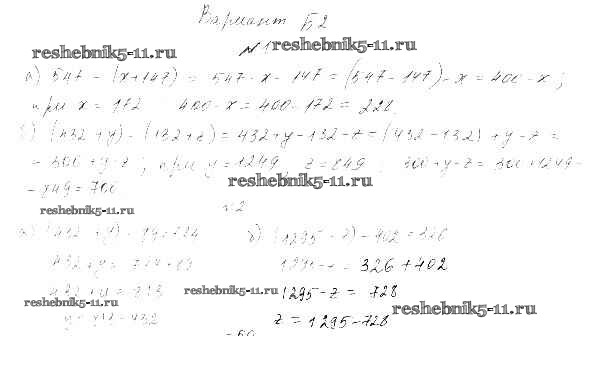 Вариант Б2
№1
reshebnik5-11.ru reshebnik5-11.ru
а) 547 - (x+147) = 547-x-147 = (547-147)-x = 400-x;
при x = 172 400-x = 400-172 = 228.
(432+y) - (132+z) = 432+y-132-z = (432-132)+y-z =
= 300+y-z; при y=1249, z=849; 300+y-z = 300+1249-
reshebnik5-11.ru
- 849 = 700
reshebnik5-11.ru
№2
б) (1295-z)-402=326
1295-z = 326+402
reshebnik5-11.ru 1295-z = 728
reshebnik5-11.ru
reshebnik5-11.ru
z = 1295-728